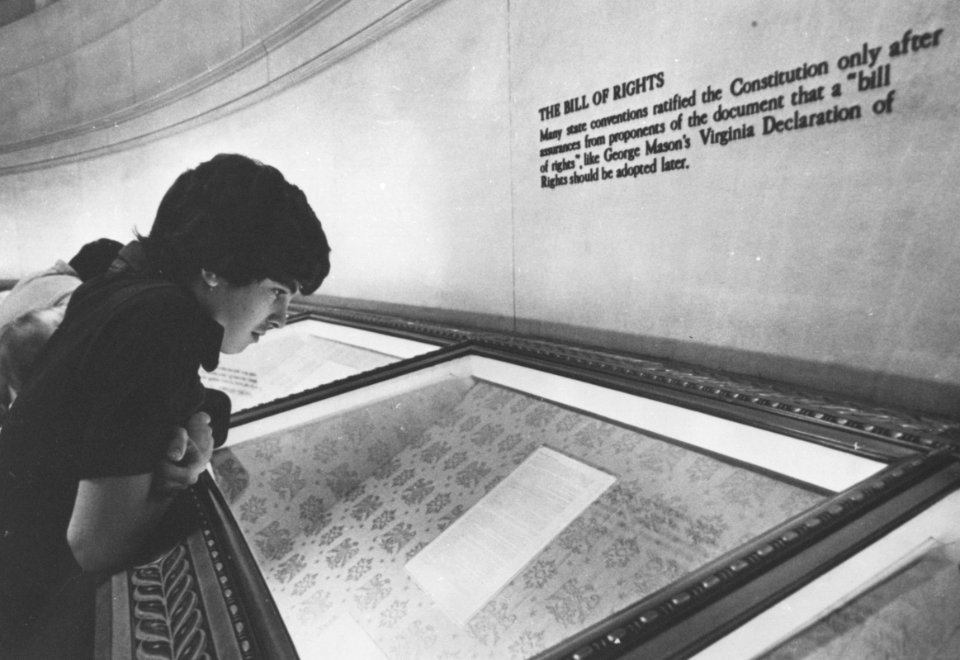 THE BILL OF RIGHTS
Many state conventions ratified the Constitution only after
assurances from proponents of the document that a "bill
of rights", like George Mason's Virginia Declaration of
Rights should be adopted later.